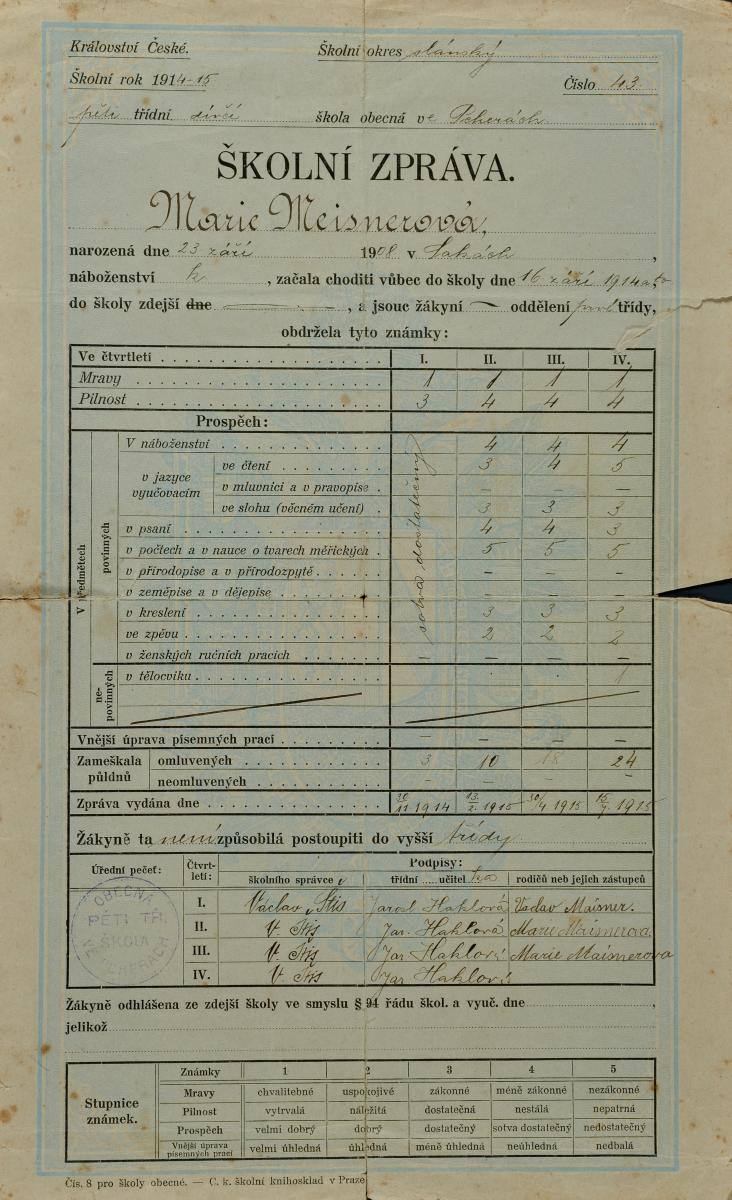 Království České. Školní okres slánský
Školní rok 1914-15 Číslo 43
pěti třídní dívčí škola obecná ve Pcherách
ŠKOLNÍ ZPRÁVA.
Marie Meisnerová,
narozená dne 23 září 1908 v ,
náboženství k , začala choditi vůbec do školy dne 16 září 1914
do školy zdejší dne , a jsouc žákyní oddělení prvé třídy,
obdržela tyto známky:
Ve čtvrtletí I. II. III. IV.
Mravy 1 1 1 1
Pilnost 3 4 4 4
Prospěch:
V předmětech
povinných
sotva dostatečný
V náboženství 4 4 4
v jazyce vyučovacím
ve čtení 3 4 5
v mluvnici a v pravopise – – –
ve slohu (věcném učení) 3 3 3
v psaní 4 4 3
v počtech a v nauce o tvarech měřických 5 5 5
v přírodopise a v přírodozpytě – – –
v zeměpise a v dějepise – – –
v kreslení 3 3 3
ve zpěvu 2 2 2
v ženských ručních pracích – – – –
nepovinných
v tělocviku 1
Vnější úprava písemných prací – – – –
Zameškala půldnů
omluvených 3 10 18 24
neomluvených – – – –
Zpráva vydána dne 30/11 1914 13/2 1915 30/4 1915 15/7 1915
Žákyně ta není způsobilá postoupiti do vyšší třídy
Úřední pečeť: Čtvrtletí: Podpisy:
školního správce třídní učitelka rodičů neb jejich zástupců
I. Václav Stis Jarosl Haklová Václav Maisner.
II. V. Stis Jar. Haklová Marie Maisnerova
III. V. Stis Jar Haklová Marie Maisnerova
IV. V. Stis Jar Haklová
OBECNÁ
PĚTI TŘ.
ŠKOLA
V PCHERÁCH
Žákyně odhlášena ze zdejší školy ve smyslu § 94 řádu škol. a vyuč. dne ,
jelikož
Stupnice známek.
Známky 1 2 3 4 5
Mravy chvalitebné uspokojivé zákonné méně zákonné nezákonné
Pilnost vytrvalá náležitá dostatečná nestálá nepatrná
Prospěch velmi dobrý dobrý dostatečný sotva dostatečný nedostatečný
Vnější úprava písemných prací velmi úhledná úhledná méně úhledná neúhledná nedbalá
Čís. 8 pro školy obecné. — C. k. školní knihosklad v Praze